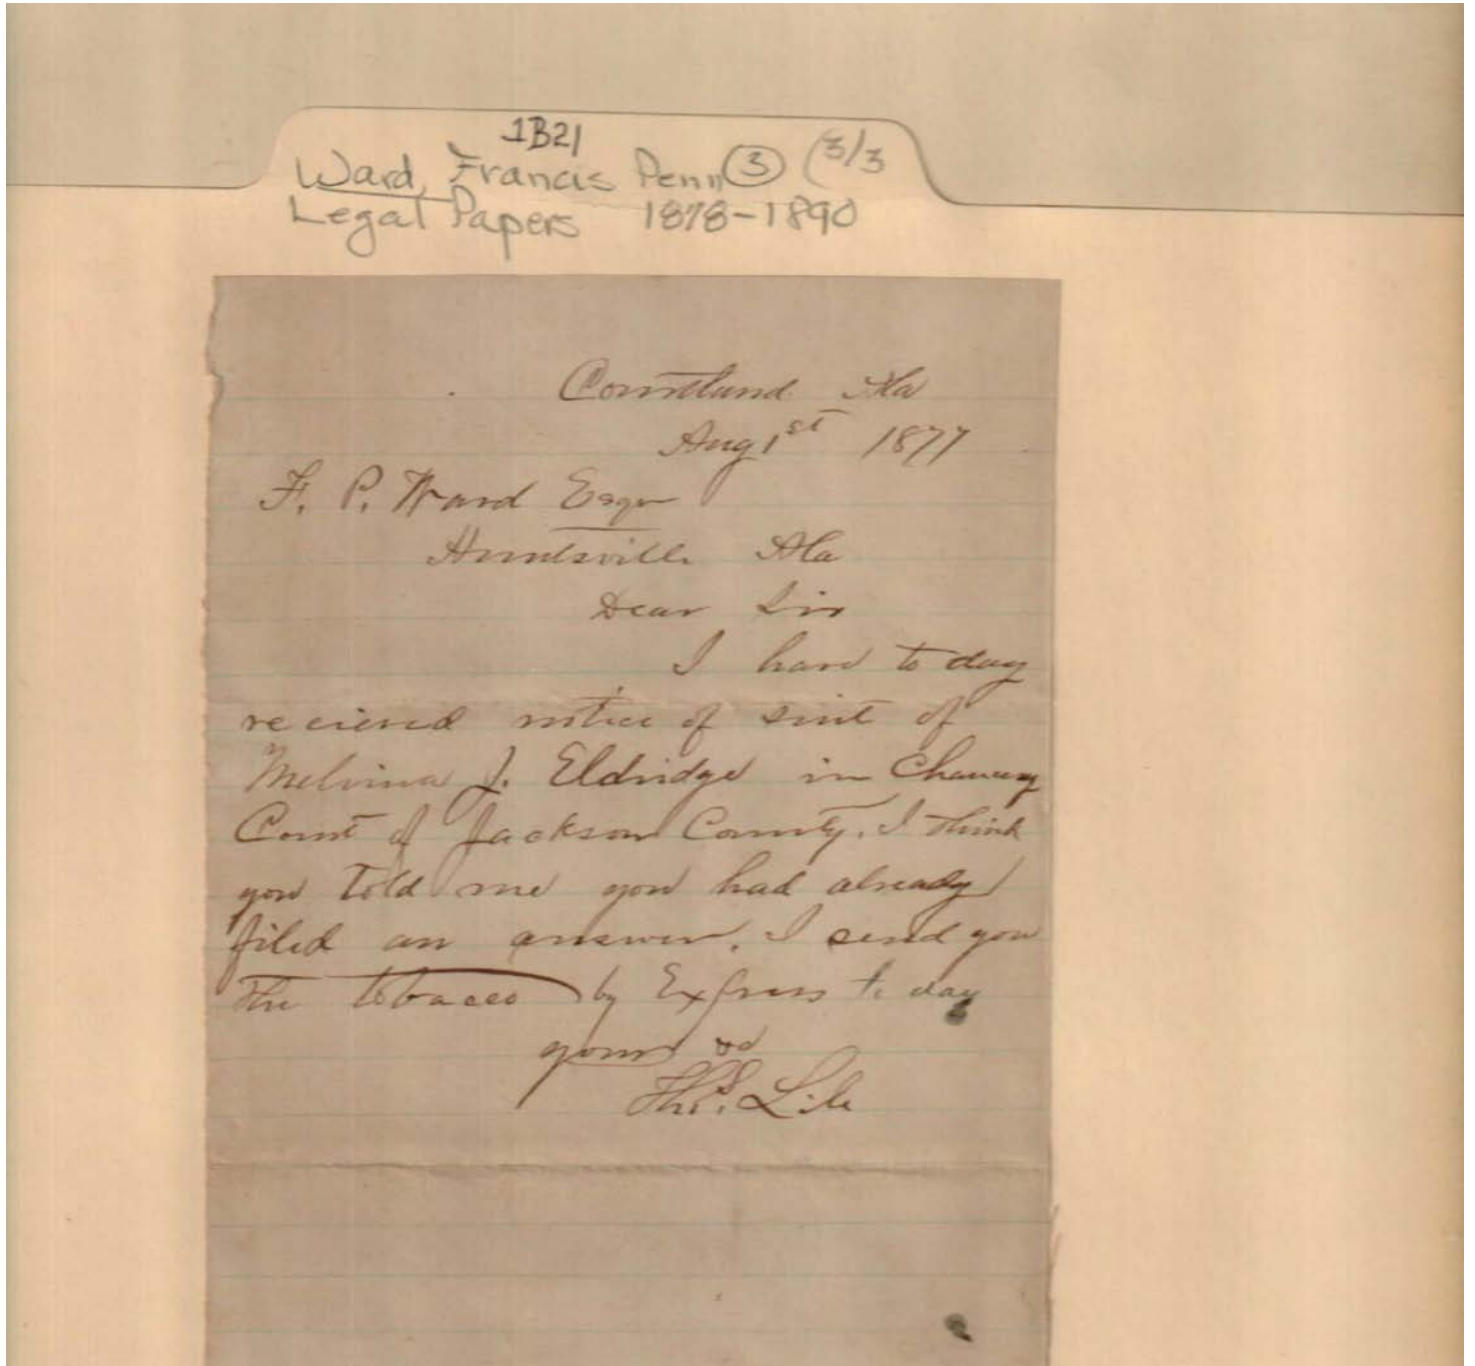 1B21
Ward, Francis Penn ③ (3/3
Legal Papers 1878-1890
Courtland Ala
Aug 1st 1877
F. P. Ward Esqr
Huntsville Ala
Dear Sir
I have to day
recieved notice of suit of
Melvina J. Eldridge in Chancery
Court of Jackson County. I think
you told me you had already
filed an answer. I send you
the tobacco by Express to day
yours &c
Thos.